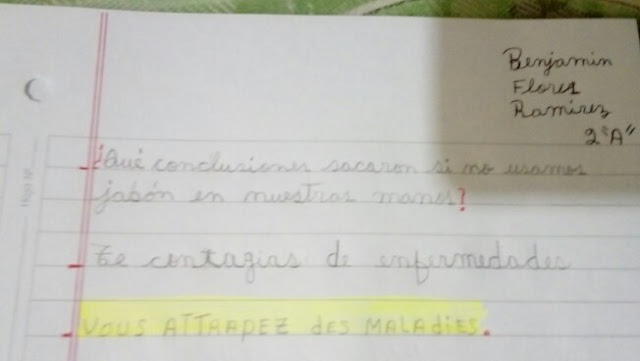 Benjamin
Flores
Ramirez
2"A"
¿Qué conclusiones sacaron si no usamos
jabón en nuestras manos?
te contagias de enfermedades
VOUS ATTRAPEZ des MALAdiES.
Hoja Nº